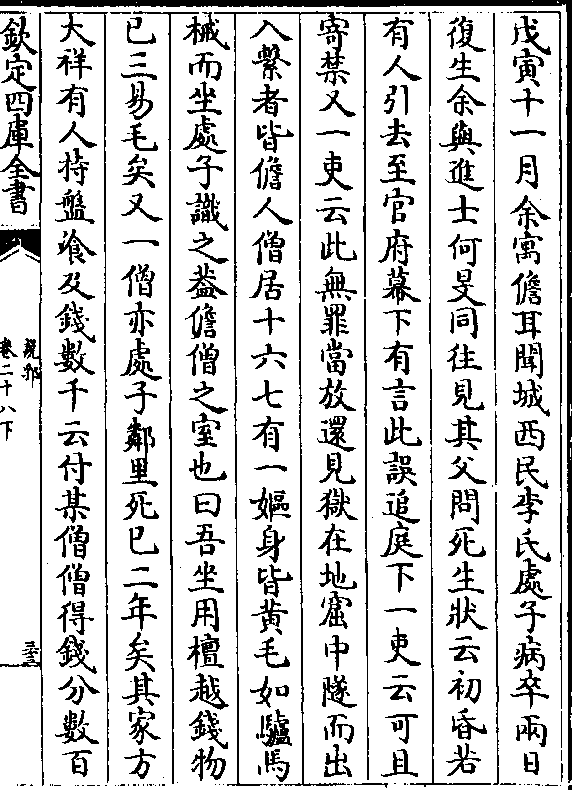 戊寅十一月余寓儋耳聞城西民李氏處子病卒兩日
復生余與進士何旻同往見其父問死生狀云初昏若
有人引去至官府幕下有言此誤追庭下一吏云可且
寄禁又一吏云此無罪當放還見獄在地窟中隧而出
入繫者皆儋人僧居十六七有一嫗身皆黄毛如驢馬
械而坐處子識之葢儋僧之室也曰吾坐用檀越錢物
已三易毛矣又一僧亦處子鄰里死已二年矣其家方
大祥有人持盤飱及錢數千云付某僧僧得錢分數百
欽定四庫全書
說郛
卷二十八下
三三